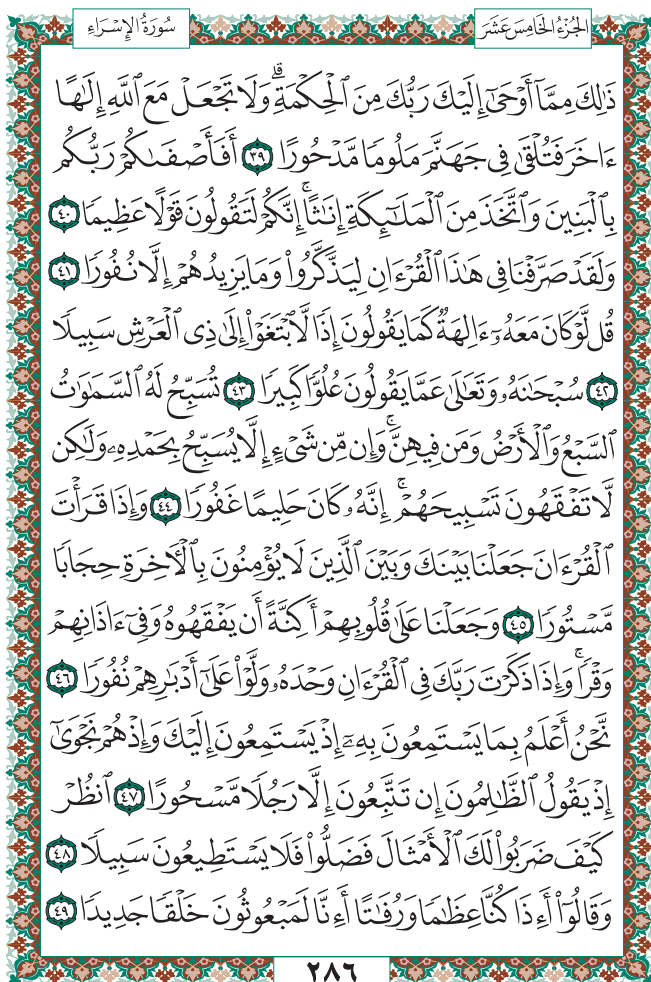 الجُزْءُ الخَامِسَ عَشَرَ سُورَةُ الإِسْرَاءِ
ذَٰلِكَ مِمَّآ أَوْحَىٰٓ إِلَيْكَ رَبُّكَ مِنَ ٱلْحِكْمَةِۗ وَلَا تَجْعَلْ مَعَ ٱللَّهِ إِلَٰهًا
ءَاخَرَ فَتُلْقَىٰ فِى جَهَنَّمَ مَلُومًا مَّدْحُورًا ٣٩ أَفَأَصْفَىٰكُمْ رَبُّكُم
بِٱلْبَنِينَ وَٱتَّخَذَ مِنَ ٱلْمَلَٰٓئِكَةِ إِنَٰثًاۚ إِنَّكُمْ لَتَقُولُونَ قَوْلًا عَظِيمًا ٤٠
وَلَقَدْ صَرَّفْنَا فِى هَٰذَا ٱلْقُرْءَانِ لِيَذَّكَّرُوا۟ وَمَا يَزِيدُهُمْ إِلَّا نُفُورًا ٤١
قُل لَّوْ كَانَ مَعَهُۥٓ ءَالِهَةٌ كَمَا يَقُولُونَ إِذًا لَّٱبْتَغَوْا۟ إِلَىٰ ذِى ٱلْعَرْشِ سَبِيلًا
٤٢ سُبْحَٰنَهُۥ وَتَعَٰلَىٰ عَمَّا يَقُولُونَ عُلُوًّا كَبِيرًا ٤٣ تُسَبِّحُ لَهُ ٱلسَّمَٰوَٰتُ
ٱلسَّبْعُ وَٱلْأَرْضُ وَمَن فِيهِنَّۚ وَإِن مِّن شَىْءٍ إِلَّا يُسَبِّحُ بِحَمْدِهِۦ وَلَٰكِن
لَّا تَفْقَهُونَ تَسْبِيحَهُمْۚ إِنَّهُۥ كَانَ حَلِيمًا غَفُورًا ٤٤ وَإِذَا قَرَأْتَ
ٱلْقُرْءَانَ جَعَلْنَا بَيْنَكَ وَبَيْنَ ٱلَّذِينَ لَا يُؤْمِنُونَ بِٱلْءَاخِرَةِ حِجَابًا
مَّسْتُورًا ٤٥ وَجَعَلْنَا عَلَىٰ قُلُوبِهِمْ أَكِنَّةً أَن يَفْقَهُوهُ وَفِىٓ ءَاذَانِهِمْ
وَقْرًاۚ وَإِذَا ذَكَرْتَ رَبَّكَ فِى ٱلْقُرْءَانِ وَحْدَهُۥ وَلَّوْا۟ عَلَىٰٓ أَدْبَٰرِهِمْ نُفُورًا ٤٦
نَّحْنُ أَعْلَمُ بِمَا يَسْتَمِعُونَ بِهِۦٓ إِذْ يَسْتَمِعُونَ إِلَيْكَ وَإِذْ هُمْ نَجْوَىٰٓ
إِذْ يَقُولُ ٱلظَّٰلِمُونَ إِن تَتَّبِعُونَ إِلَّا رَجُلًا مَّسْحُورًا ٤٧ ٱنظُرْ
كَيْفَ ضَرَبُوا۟ لَكَ ٱلْأَمْثَالَ فَضَلُّوا۟ فَلَا يَسْتَطِيعُونَ سَبِيلًا ٤٨
وَقَالُوٓا۟ أَءِذَا كُنَّا عِظَٰمًا وَرُفَٰتًا أَءِنَّا لَمَبْعُوثُونَ خَلْقًا جَدِيدًا ٤٩
٢٨٦